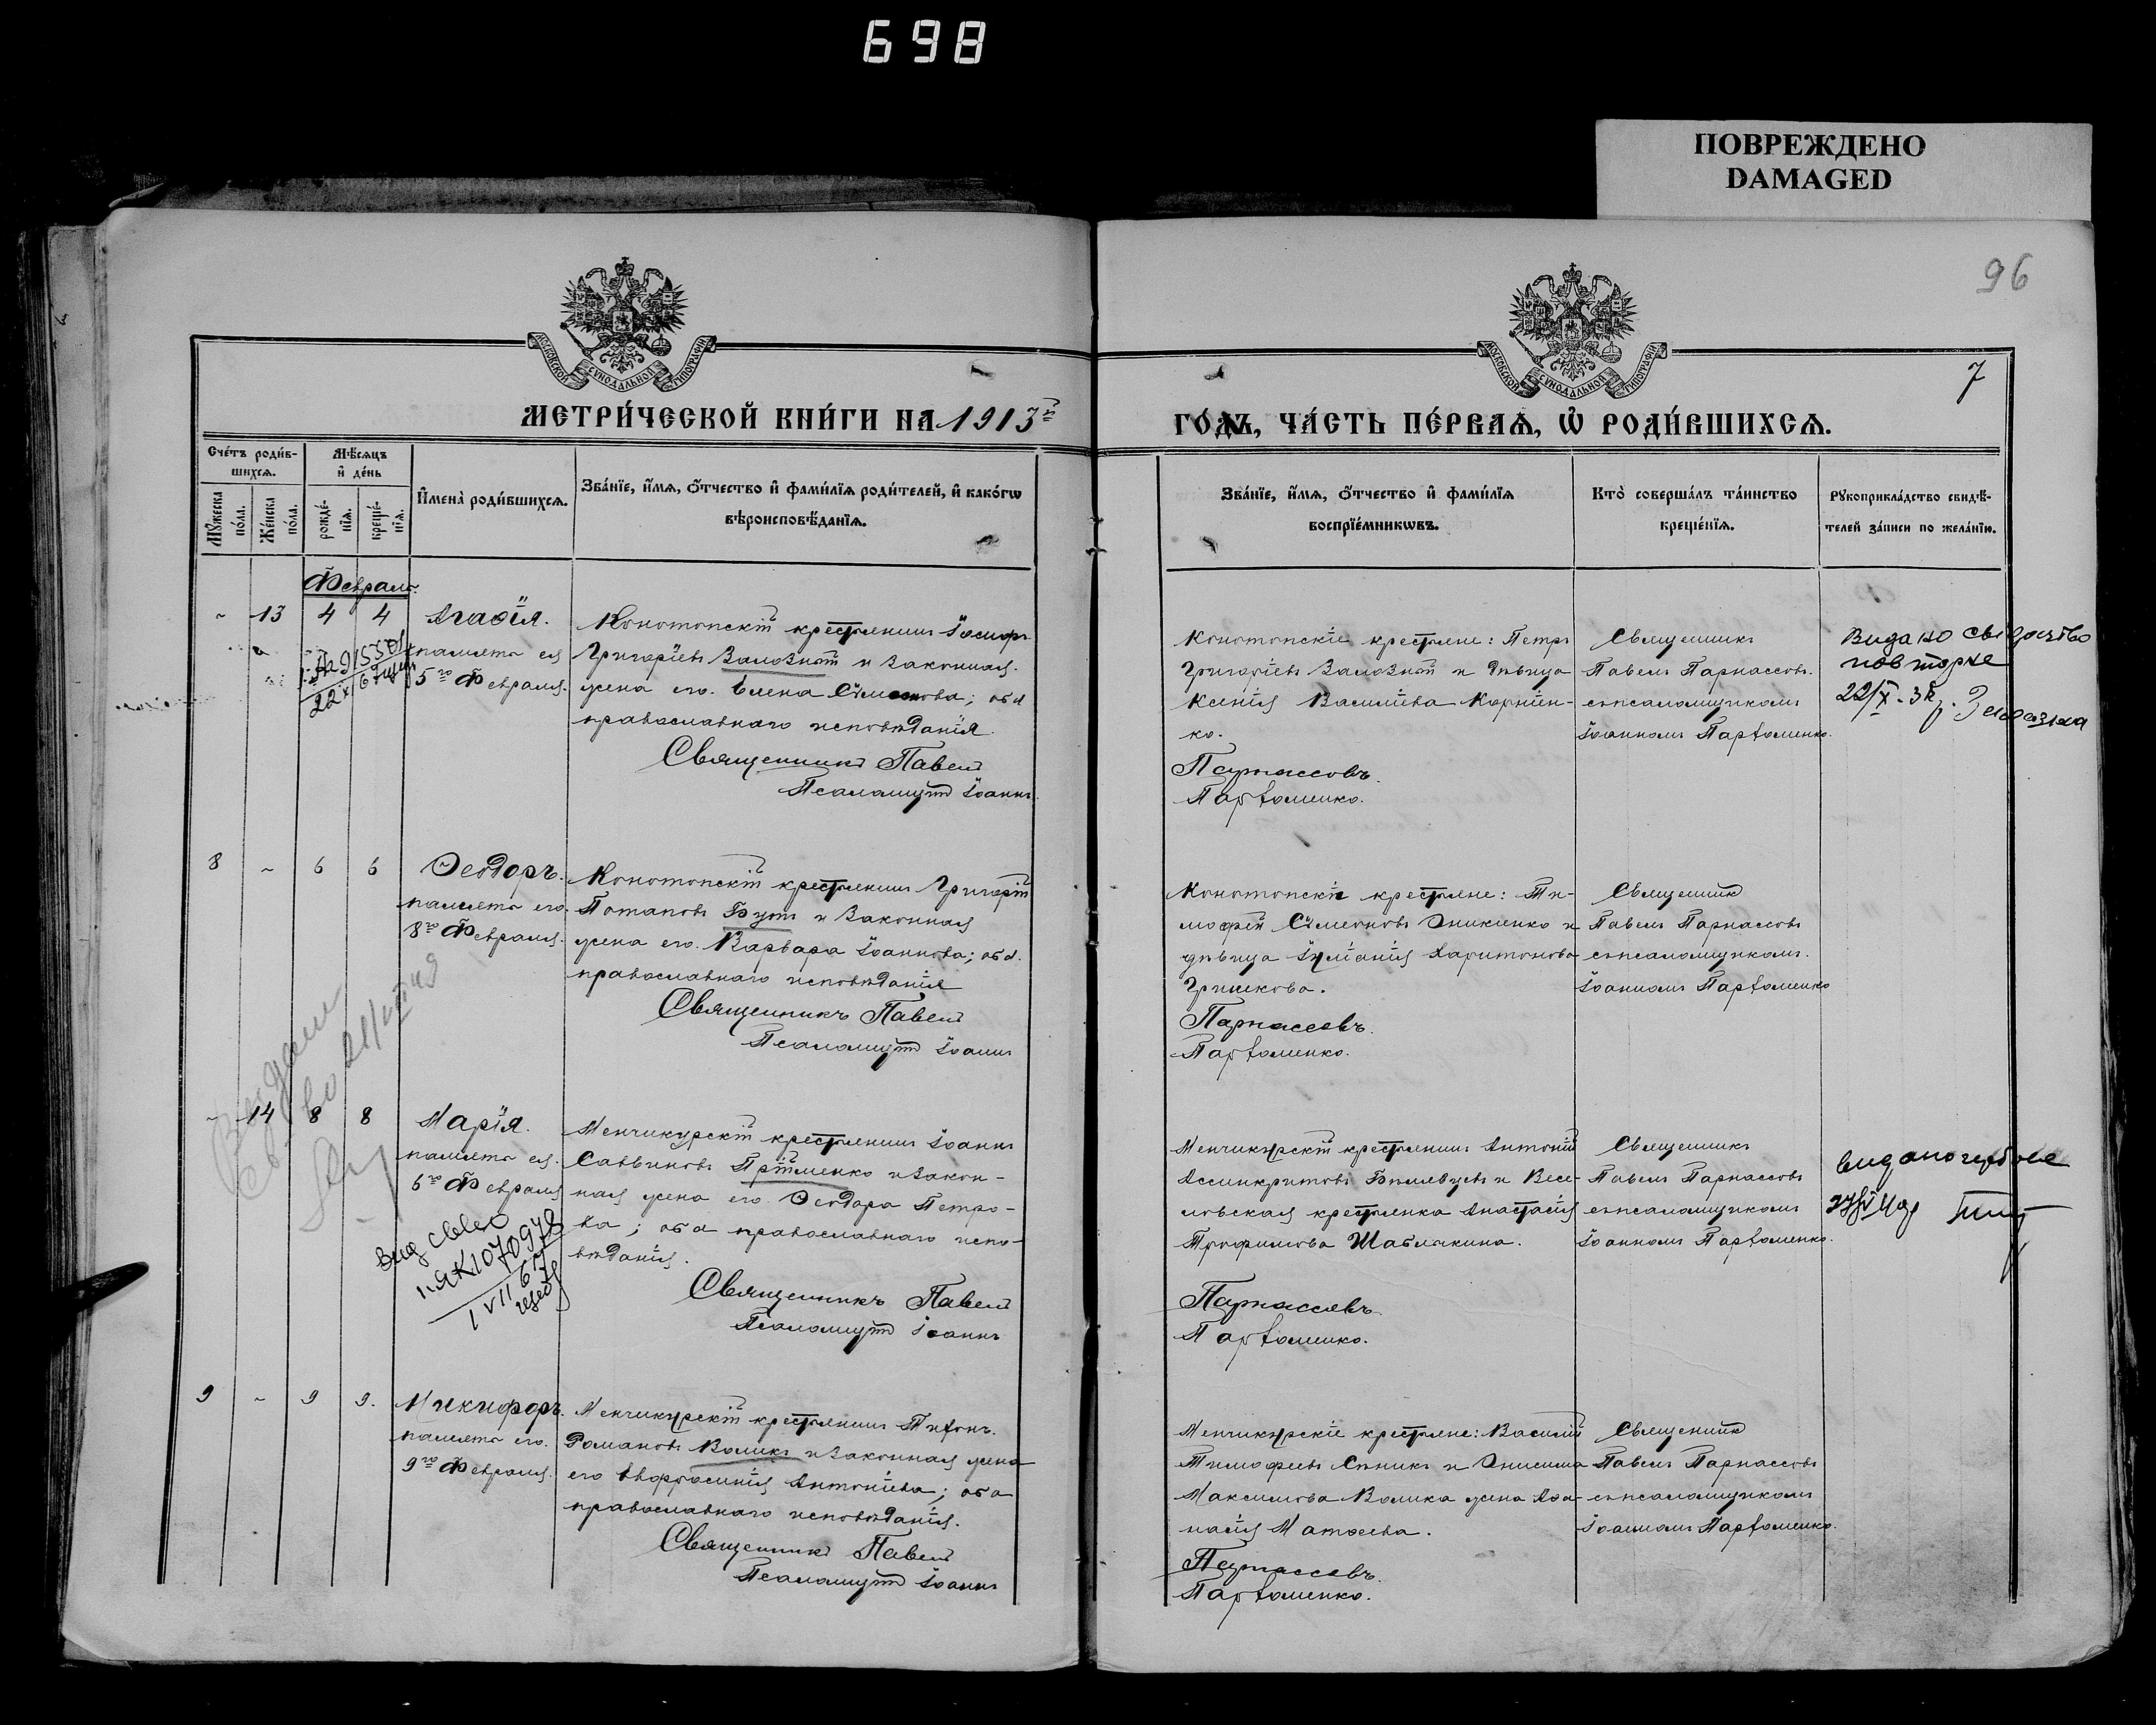 698
ПОВРЕЖДЕНО
DAMAGED
96
7
МОСКОВСКОЙ СѴНОДАЛЬНОЙ ТИПОГРАФІИ
МОСКОВСКОЙ СѴНОДАЛЬНОЙ ТИПОГРАФІИ
МЕТРИ́ЧЕСКОЙ КНИ́ГИ НА 1913й
ГО́ДЪ, ЧА́СТЬ ПЕ́РВАѦ, Ѡ҆ РОДИ́ВШИХСѦ.
Сче́тъ роди́в-
шихсѧ.
Мꙋ́жеска по́ла.
Же́нска пола.
Мѣ́сѧцъ
и҆ де́нь
рожде́-
нїѧ.
креще́-
нїѧ.
И҆мена̀ роди́вшихсѧ.
Зва́нїе, и҆́мѧ, ѻ҆́тчество и҆ фами́лїѧ роди́телей, и҆ како́гѡ
вѣроисповѣ́данїѧ.
Зва́нїе, и҆́мѧ, ѻ҆́тчество и҆ фами́лїѧ
воспрїе́мникѡвъ.
Кто̀ соверша́лъ та́инство
креще́нїѧ.
Рꙋкоприкла́дство свидѣ́-
телей за́писи по жела́нїю.
Февраль.
~ 13 4 4 Агаѳія.
память ея
5го Февраля.
Конотопскій крестьянинъ Іосифъ
Григоріевъ Заловный и законная
жена его Елена Сѵмеонова; оба
православнаго исповѣданія.
Священникъ Павелъ
Псаломщикъ Іоаннъ
Конотопскіе крестьяне: Петръ
Григоріевъ Заловный и дѣвица
Ксенія Василіева Корніен-
ко.
Парнассовъ.
Парѳоменко.
Священникъ
Павелъ Парнассовъ
съ псаломщикомъ
Іоанномъ Парѳоменко.
Видано свідоцтво
повторне
8 ~ 6 6 Ѳеодоръ.
память его
8го Февраля.
Конотопскій крестьянинъ Григорій
Потаповъ Бутъ и законная
жена его Варвара Іоаннова; оба
православнаго исповѣданія
Священникъ Павелъ
Псаломщикъ Іоаннъ
Конотопскіе крестьяне: Ти-
мофей Сѵмеоновъ Оникіенко и
дѣвица Іуліанія Харитонова
Гришкова.
Парнассовъ.
Парѳоменко.
Священникъ
Павелъ Парнассовъ
съ псаломщикомъ
Іоанномъ Парѳоменко
~ 14 8 8 Марія.
память ея
6го Февраля
1 VII 67
Менчикурскій крестьянинъ Іоаннъ
Саввиновъ Пріименко и закон-
ная жена его Ѳеодора Петро-
ва; оба православнаго испо-
вѣданія.
Священникъ Павелъ
Псаломщикъ Іоаннъ
Менчикурскій крестьянинъ Антоній
Ассинкритовъ и Весе-
ловская крестьянка Анастасія
Трофимова Шаблыкина.
Парнассовъ.
Парѳоменко.
Священникъ
Павелъ Парнассовъ
съ псаломщикомъ
Іоанномъ Парѳоменко.
9 ~ 9 9. Никифоръ.
память его
9го Февраля.
Менчикурскій крестьянинъ Тихонъ
Романовъ Воликъ и законная жена
его Евфросинія Антоніева; оба
православнаго исповѣданія.
Священникъ Павелъ
Псаломщикъ Іоаннъ
Менчикурскіе крестьяне: Василій
Тимофеевъ и Онисима
Максимова Волика жена Аѳа-
насія Матѳеева.
Парнассовъ.
Парѳоменко.
Священникъ
Павелъ Парнассовъ
съ псаломщикомъ
Іоанномъ Парѳоменко.